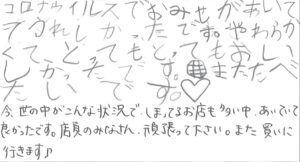 コロナウイルスでおみせがあいて
てうれしかったです。やわらか
くてとってもとってもおい
しかったです。またたべ
たいです。♡
今、世の中がこんな状況で、しまってるお店も多い中、あいていて
良かったです。店員のみなさん、頑張って下さい。また買いに
行きます♪